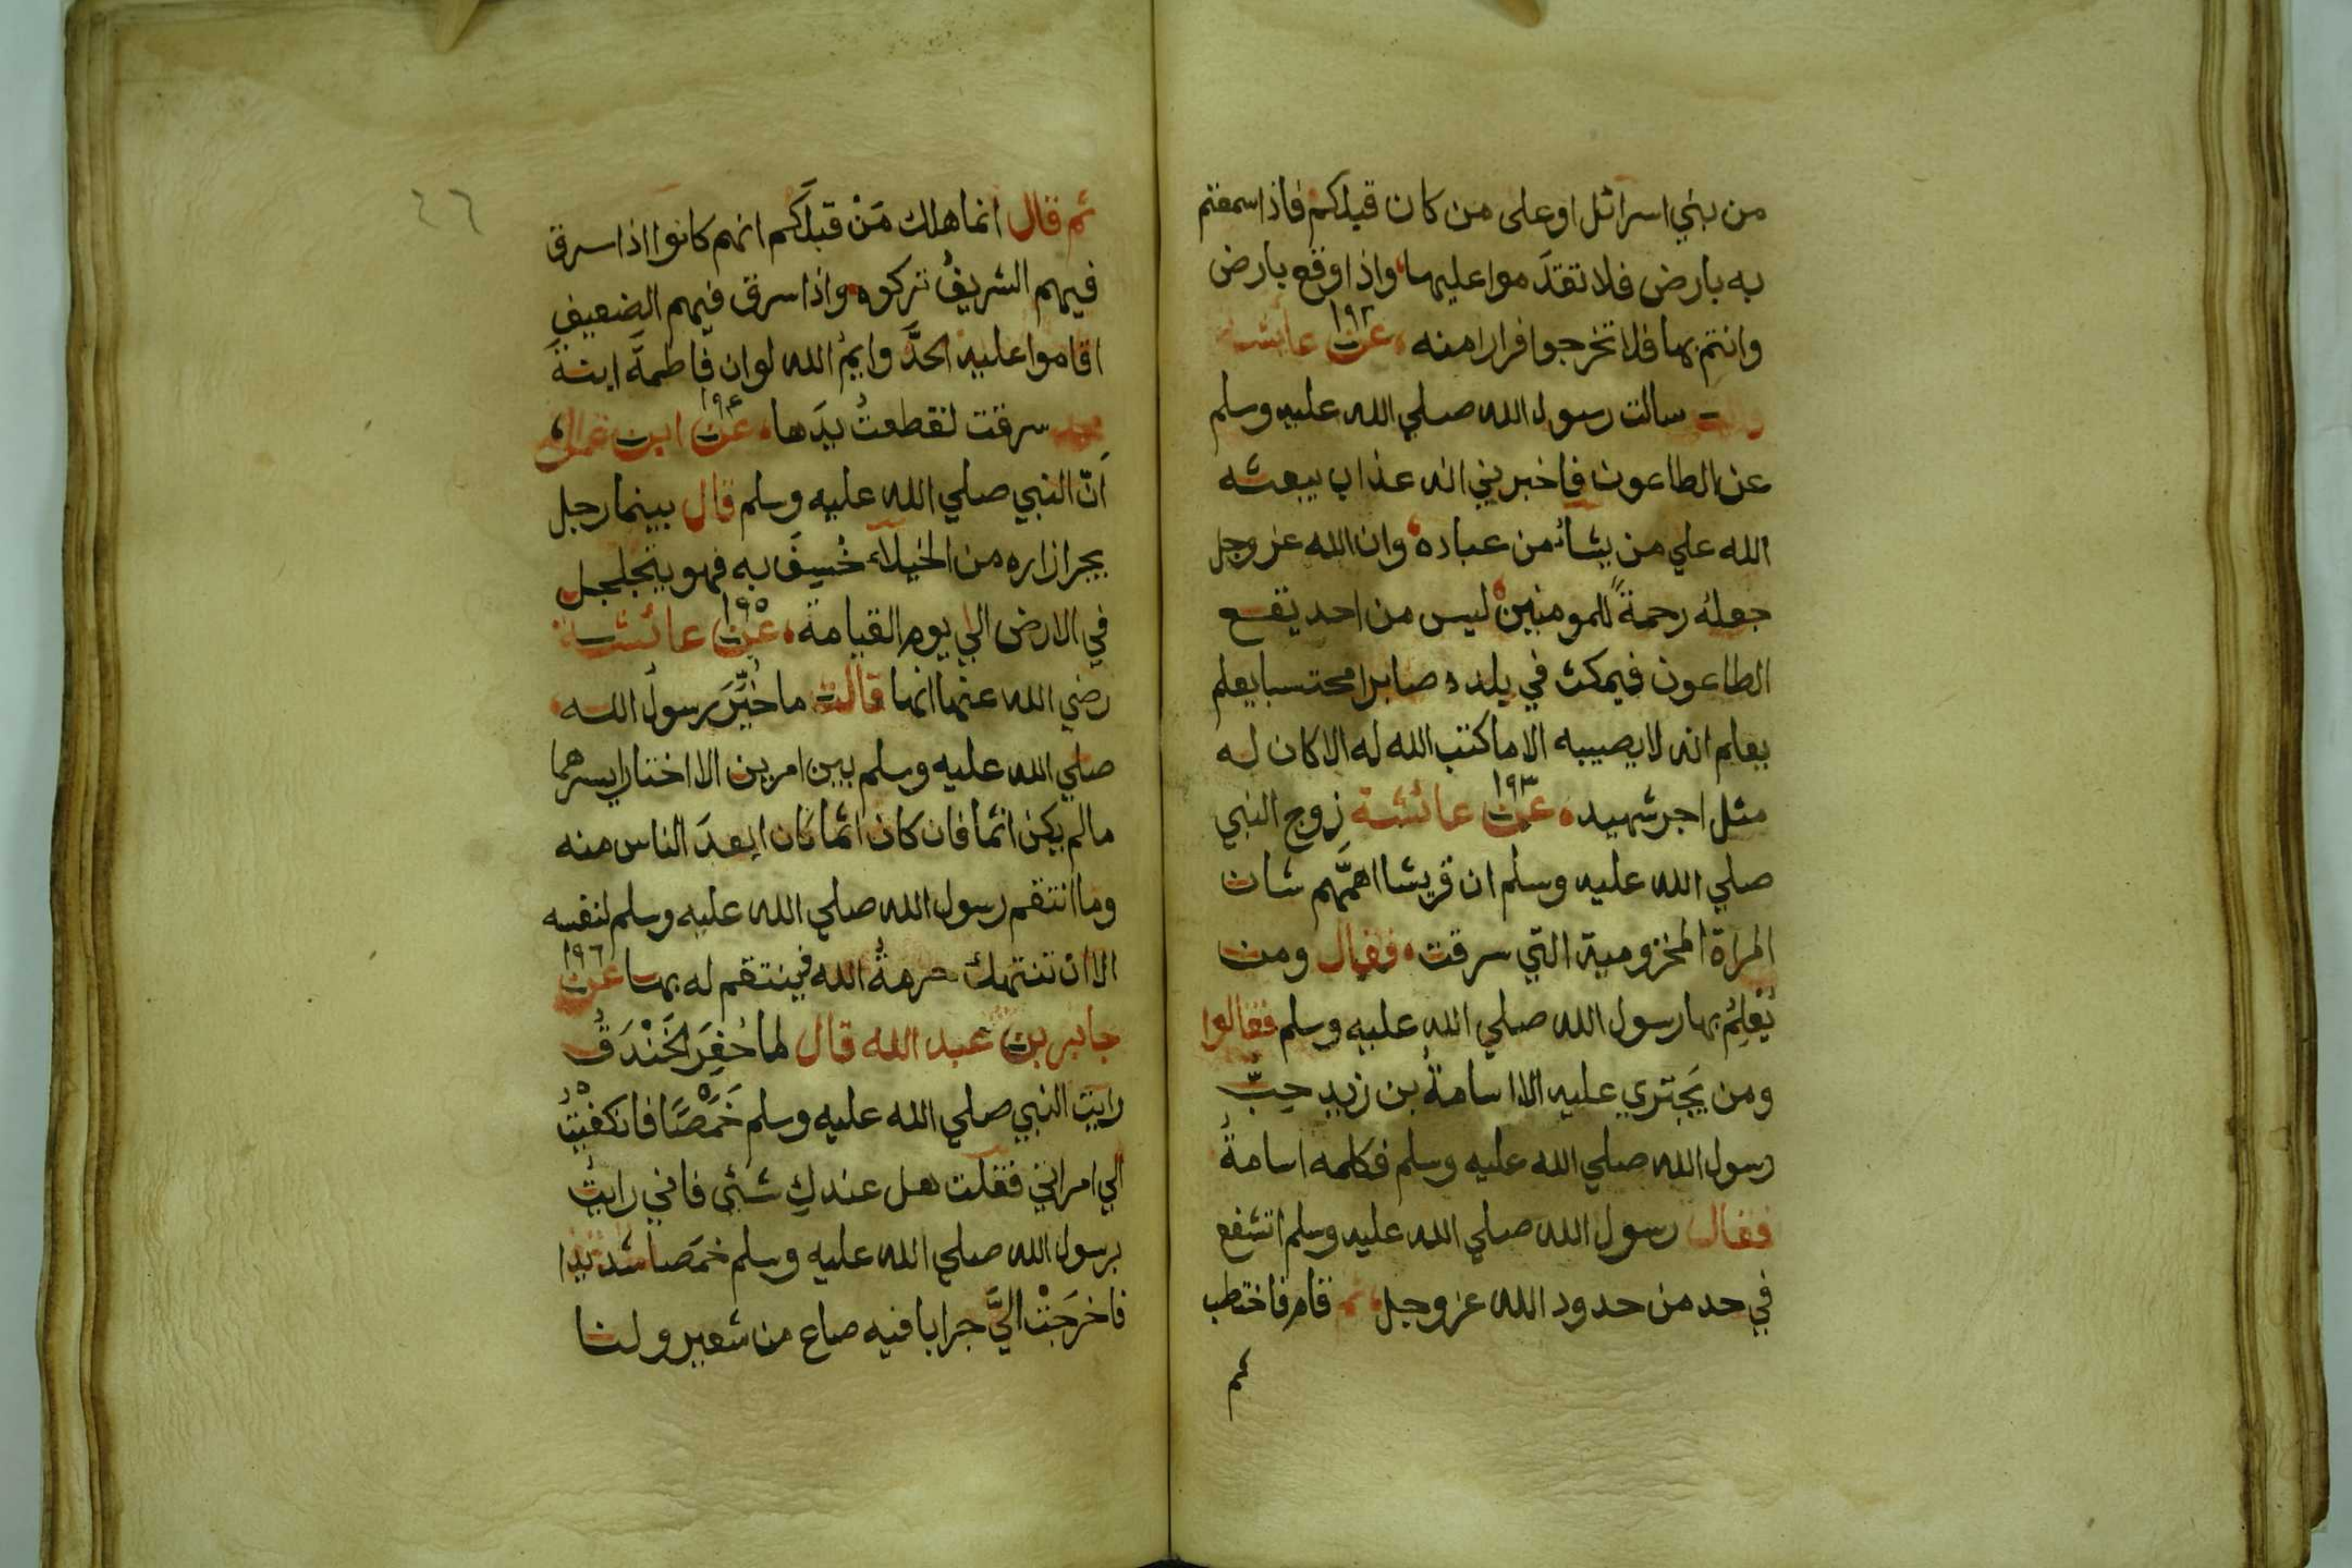 من بني اسرائل اوعلى من كان قبلكم فاذا سمعتم
به بارض فلا تقدَموا عليها واذا وقع بارض
وانتم بها فلا تخرجوا فرارا منه ١٩٢ عن عائشة
سالت رسول الله صلي الله عليه وسلم
عن الطاعون فاخبرني انه عذاب يبعثه
الله علي من يشاء من عباده وان الله عز وجل
جعله رحمةً للمومنين ليس من احد يقع
الطاعون فيمكث في بلده صابرا محتسبا يعلم
يعلم انه لا يصيبه الا ما كتب الله له الا كان له
مثل اجر شهيد ١٩٣ عن عائشة زوج النبي
صلي الله عليه وسلم ان قريشا اهمّهم شان
المراة المخزومية التي سرقت فقال ومن
يُعْلِمُ بها رسول الله صلي الله عليه وسلم فقالوا
ومن يَجتري عليه الا اسامةُ بن زيد حِبّ
رسول الله صلي الله عليه وسلم فكلمه اسامةُ
فقال رسول الله صلي الله عليه وسلم اتشفع
في حد من حدود الله عز وجل ثم قام فاختطب
ثم
٤٦
ثم قال انما هلك مَنْ قبلَكم انهم كانوا اذا سرق
فيهم الشريفُ تركوه واذا سرق فيهم الضعيف
اقاموا عليه الحدَّ وايمُ الله لو ان فاطمةَ ابنةَ
محمد سرقت لقطعتُ يدَها ١٩٤ عن ابن عمر
اَنّ النبي صلي الله عليه وسلم قال بينما رجل
يجر ازاره من الخيلاء خُسِفَ به فهو يتجلجل
في الارض الي يوم القيامة ١٩٥ عن عائشة
رضي الله عنها انها قالت ما خُيِّرَ رسولُ الله
صلي الله عليه وسلم بين امرين الا اختار ايسرهما
ما لم يكن اثما فان كان اثما كان ابعدَ الناس منه
وما انتقم رسول الله صلي الله عليه وسلم لنفسه
الا ان تنتهك حرمةُ الله فينتقم له بها ١٩٦ عن
جابر بن عبد الله قال لما حُفِرَ الخَنْدَقُ
رايت النبي صلي الله عليه وسلم خَمْصًا فانكفيْتُ
الي امراتي فقلت هل عندكِ شئى فاني رايتُ
برسول الله صلي الله عليه وسلم خمَصا شديدا
فاخرَجَتْ اليَّ جرابا فيه صاع من شعير ولنا